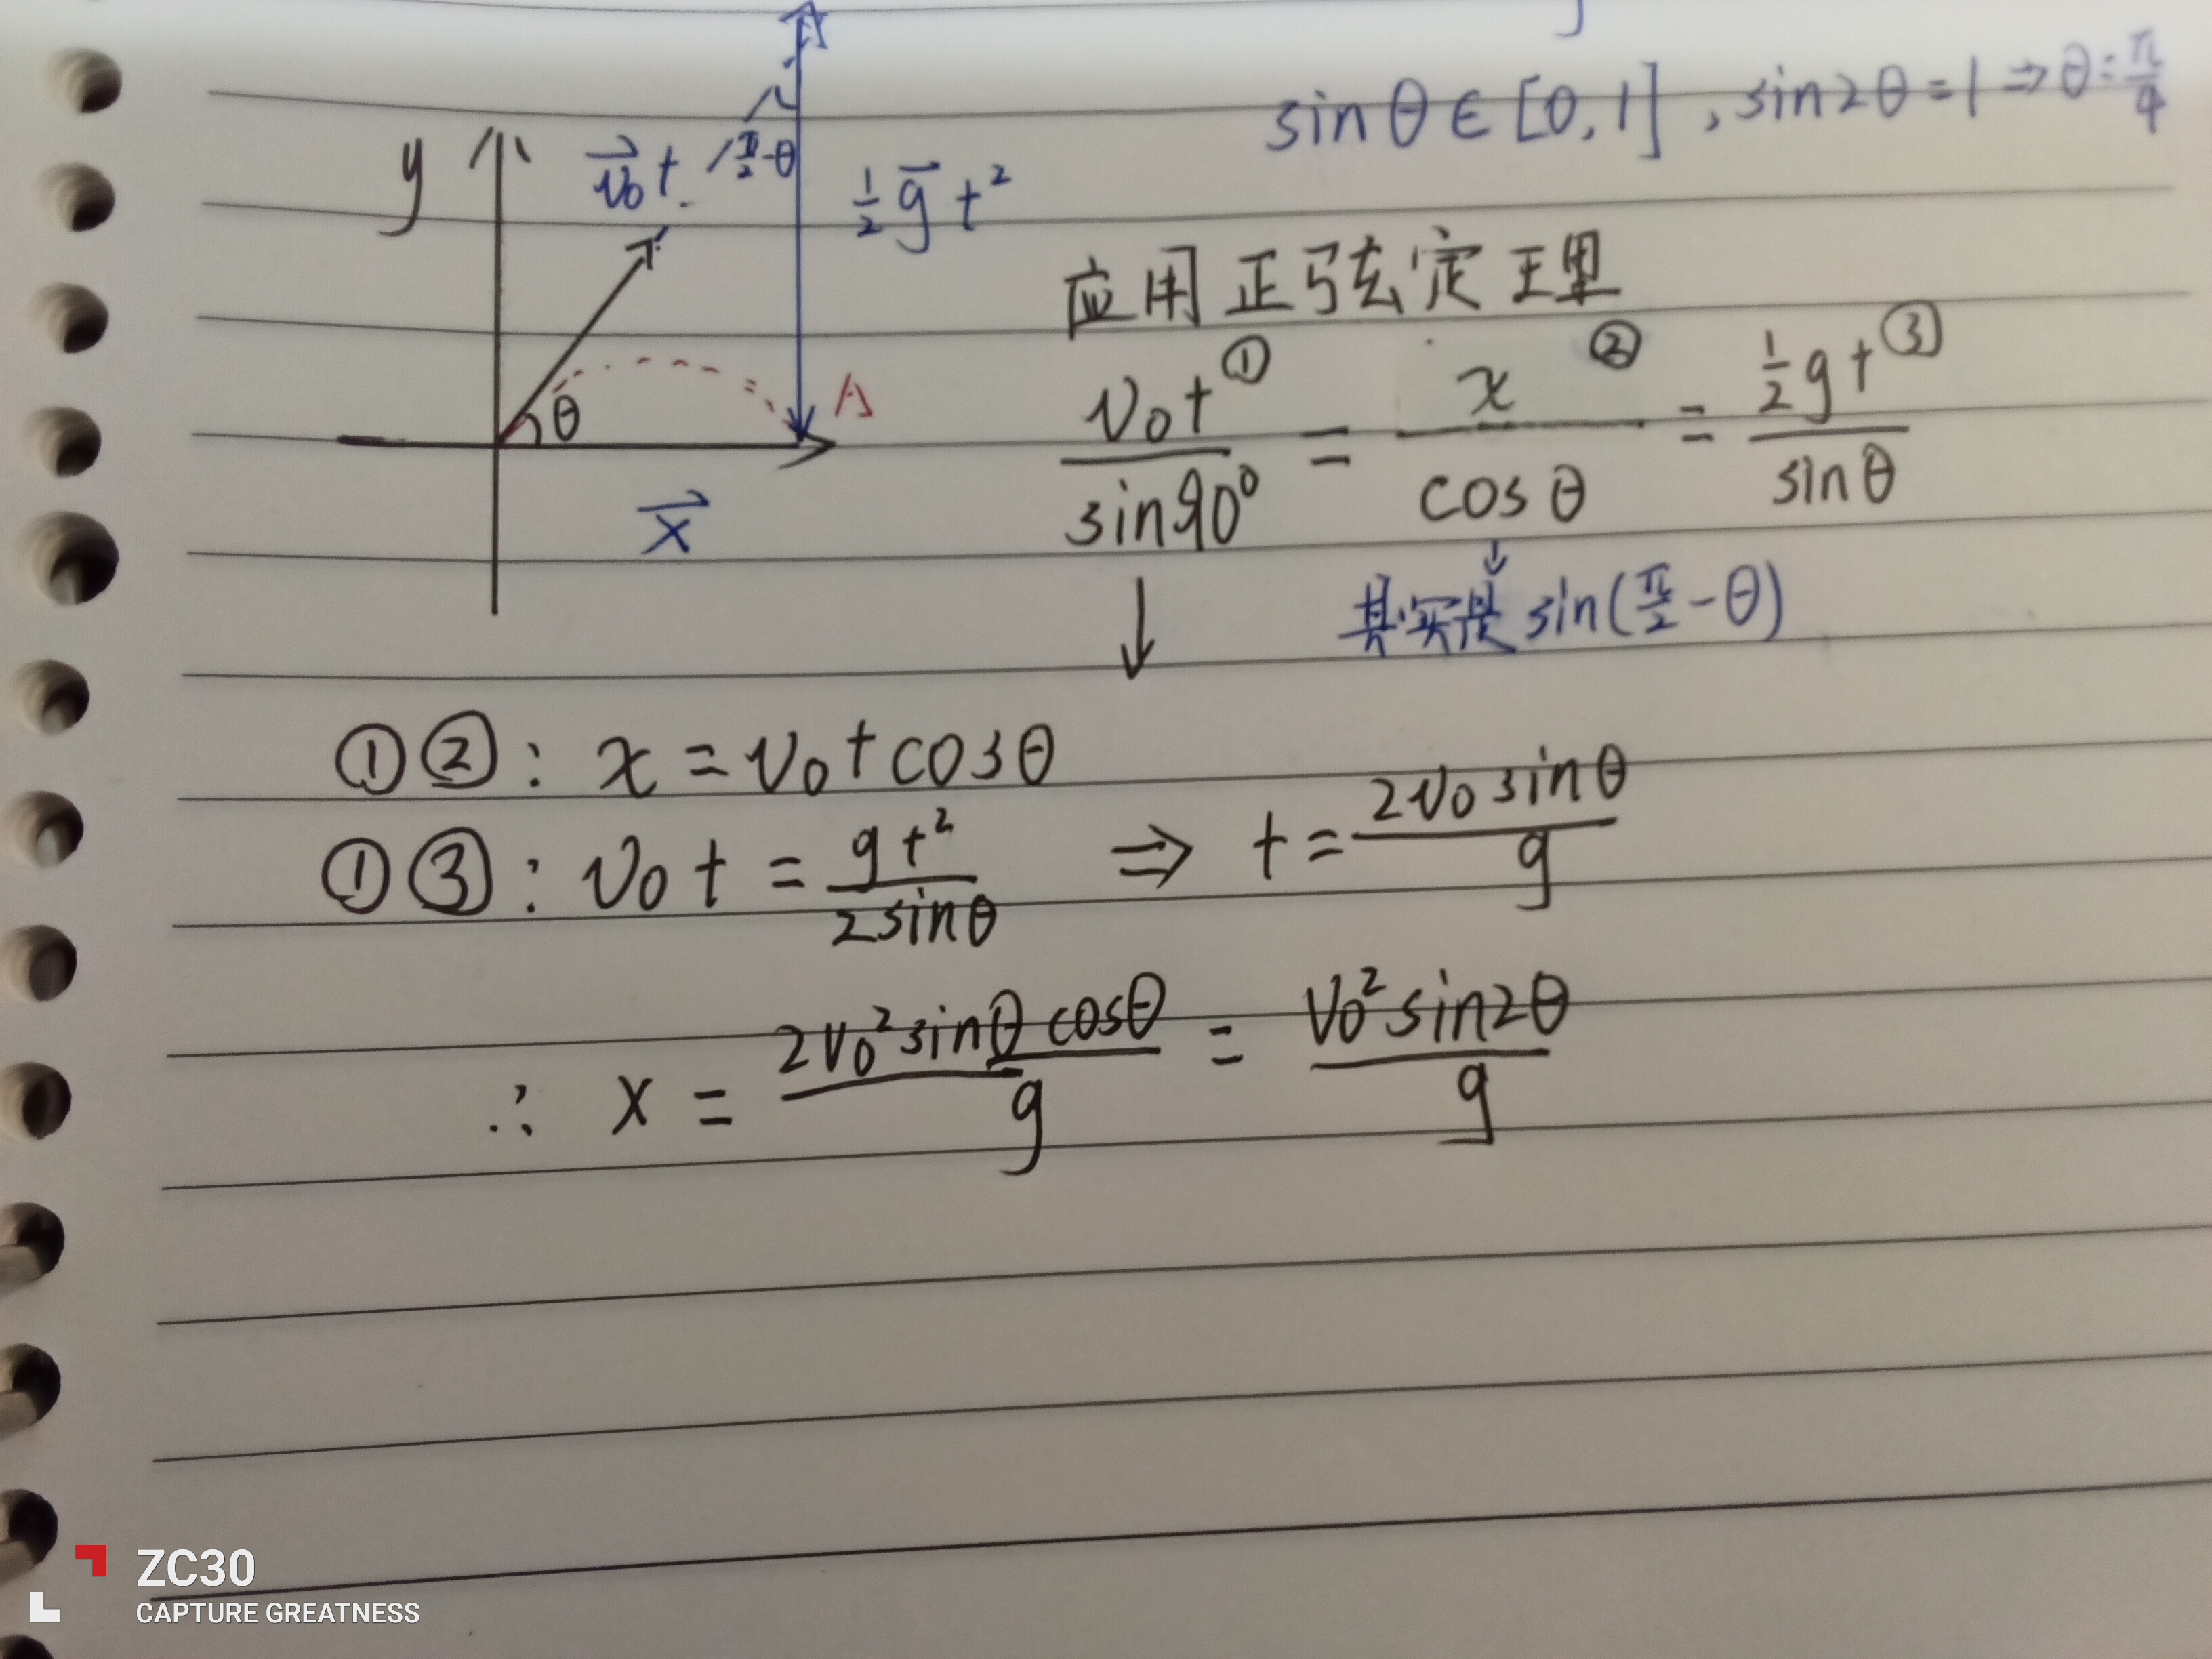 sinθ∈[0,1] , sin2θ=1⇒θ=π/4
y
v⃗₀t
π/2-θ
1/2 g⃗ t²
θ
A
x⃗
应用正弦定理
v₀t①/sin90° = x②/cosθ = 1/2 gt③/sinθ
其实是 sin(π/2-θ)
①②: x=v₀tcosθ
①③: v₀t=gt²/2sinθ ⇒ t=2v₀sinθ/g
∴ x = 2v₀²sinθcosθ/g = v₀²sin2θ/g
ZC30
CAPTURE GREATNESS